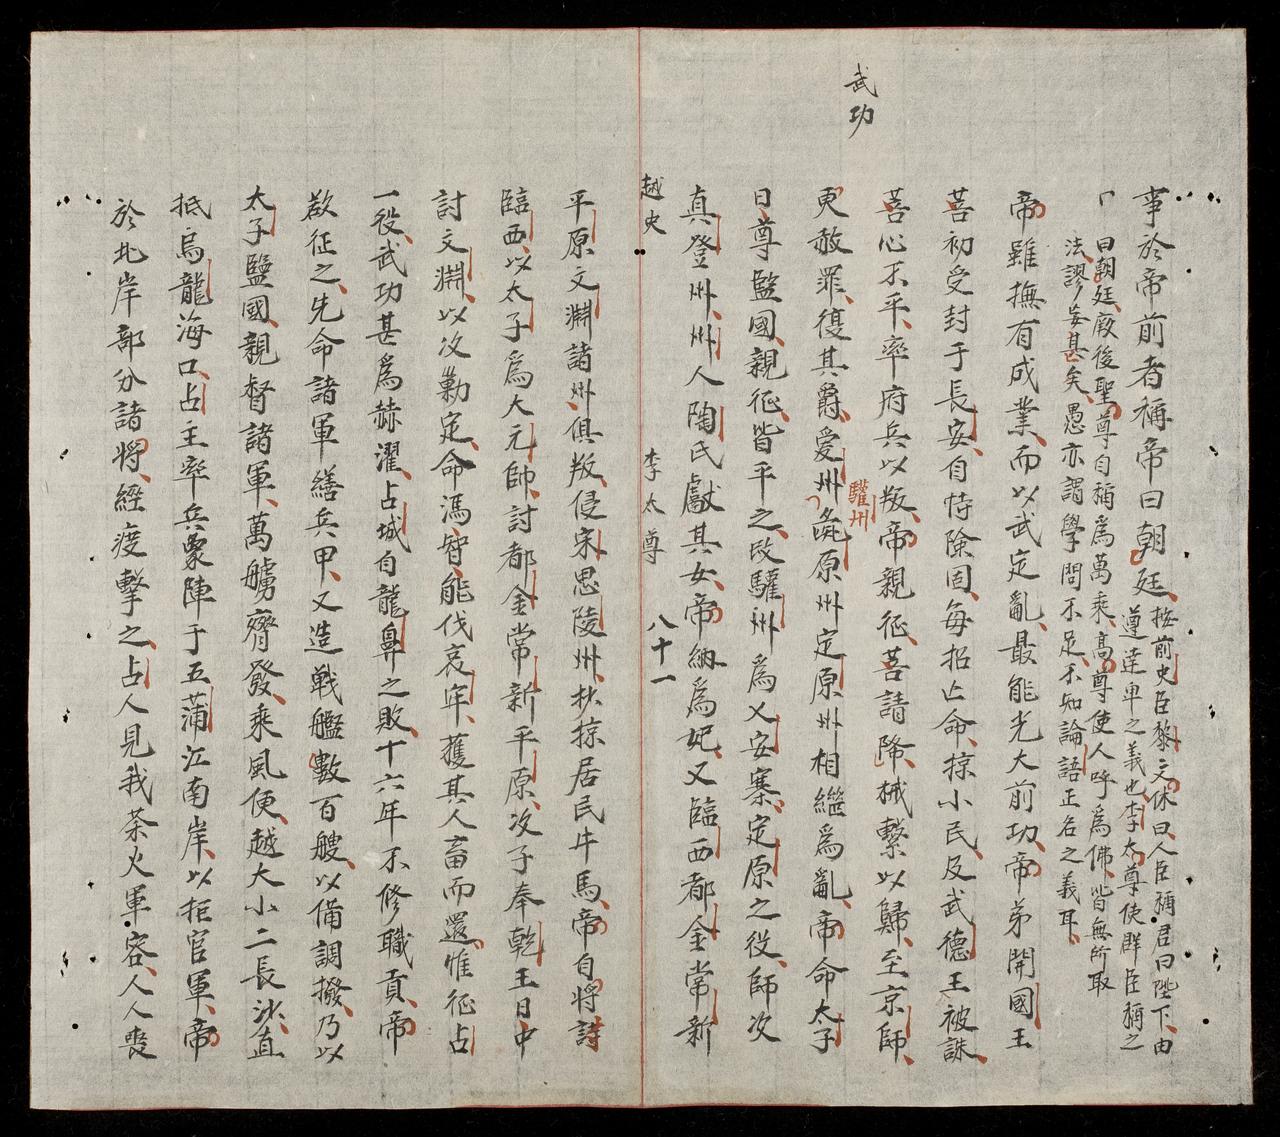 武功
事於帝前者稱帝曰朝廷按前史臣黎文休曰人臣稱君曰陛下由
遵達車之義也李太尊使群臣稱之
曰朝廷厥後聖尊自稱爲萬乘高尊使人呼爲佛皆無所取
法謬妄甚矣愚亦謂學問不足不知論語正名之義耳
帝雖撫有成業而以武定亂最能光大前功帝弟開國王
菩初受封于長安自恃險固每招亡命掠小民及武德王被誅
菩心不平率府兵以叛帝親征菩請降械繫以歸至京師
更赦罪復其爵愛州
驩州
原州定原州相繼爲亂帝命太子
日尊監國親征皆平之改驩州爲乂安寨定原之役師次
真登州州人陶氏獻其女帝納爲妃又臨西都金常新
越史
李太尊
八十一
平原文淵諸州俱叛侵宋思陵州扙掠居民牛馬帝自將討
臨西以太子爲大元帥討都金常新平原次子奉乾王日中
討文淵以次勦定命馮智能伐哀牢獲其人畜而還惟征占
一役武功甚爲赫濯占城自龍鼻之敗十六年不修職貢帝
欲征之先命諸軍繕兵甲又造戰艦數百艘以備調撥乃以
太子監國親督諸軍萬艣齊發乘風便越大小二長沙直
抵烏龍海口占主率兵象陣于五蒲江南岸以拒官軍帝
於北岸部分諸將經度擊之占人見我荼火軍容人人喪